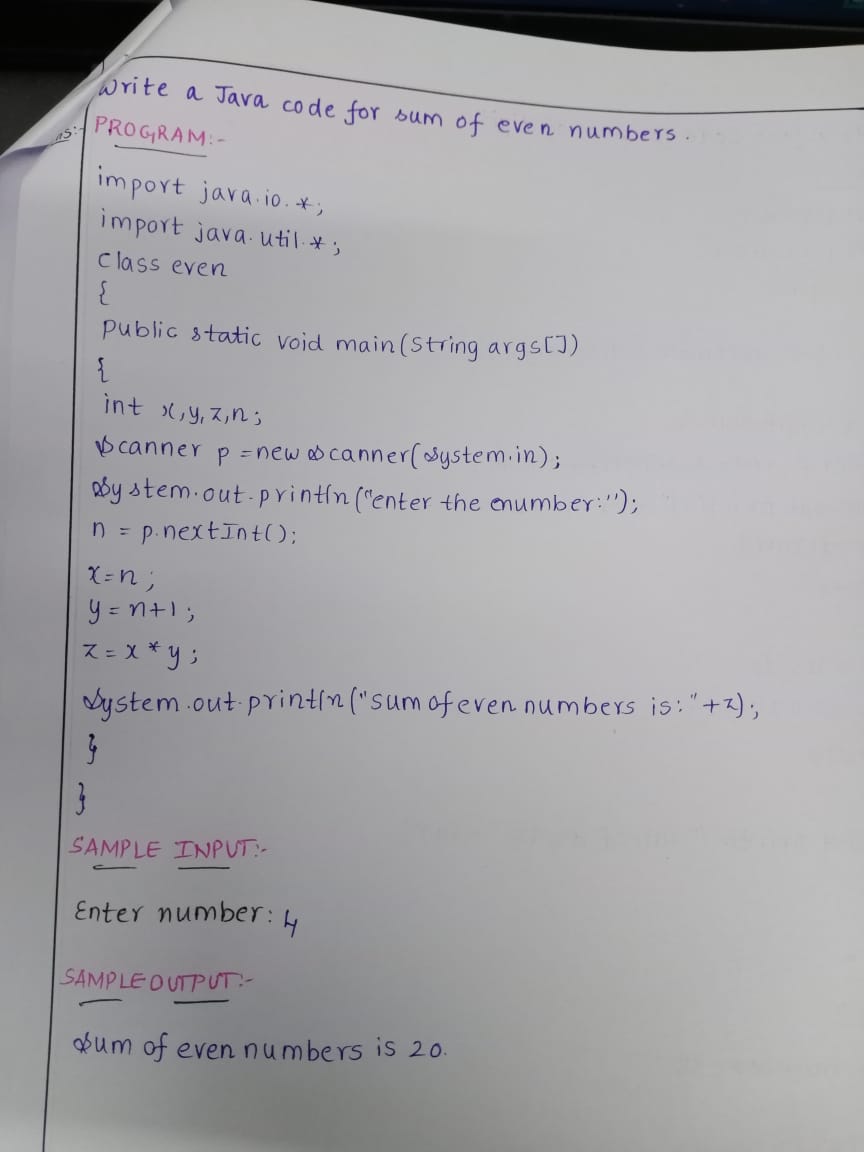 Write a Java code for sum of even numbers.
ns:-
PROGRAM:-
import java.io.*;
import java.util.*;
class even
{
public static void main(String args[])
{
int x,y,z,n;
Scanner p =new Scanner(System.in);
System.out.println("enter the number:");
n = p.nextInt();
x=n;
y=n+1;
z=x*y;
System.out.println("sum of even numbers is:"+z);
}
}
SAMPLE INPUT:-
Enter number: 4
SAMPLE OUTPUT:-
Sum of even numbers is 20.